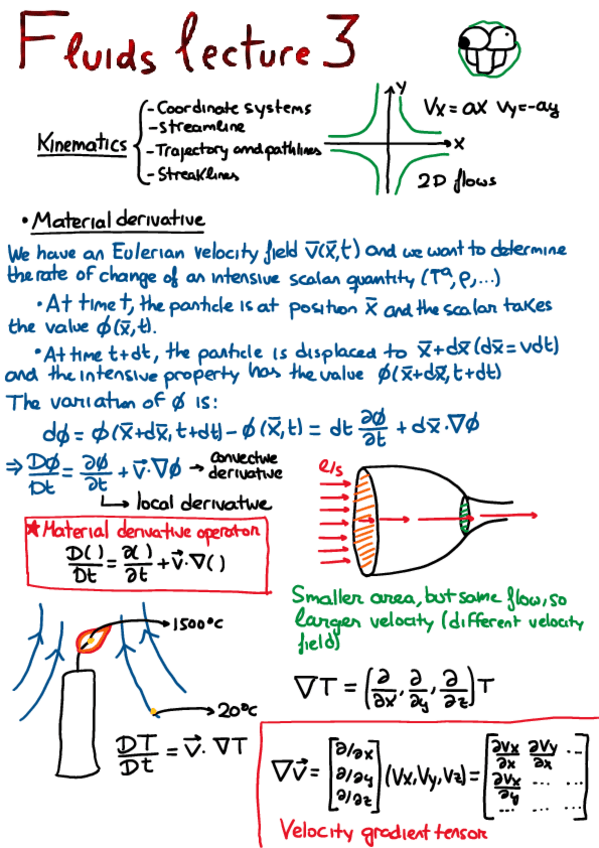 Fluids lecture 3
Kinematics
- Coordinate systems
- Streamline
- Trajectory and pathlines
- Streaklines
y
x
Vx = ax Vy = -ay
2D flows
• Material derivative
We have an Eulerian velocity field v̄(x̄,t) and we want to determine
the rate of change of an intensive scalar quantity (Tª, ρ, ...)
• At time t, the particle is at position x̄ and the scalar takes
the value ϕ(x̄,t).
• At time t+dt, the particle is displaced to x̄+dx̄ (dx̄ = vdt)
and the intensive property has the value ϕ(x̄+dx̄, t+dt)
The variation of ϕ is:
dϕ = ϕ(x̄+dx̄, t+dt) - ϕ(x̄,t) = dt ∂ϕ/∂t + dx̄·∇ϕ
⇒ Dϕ/Dt = ∂ϕ/∂t + v̄·∇ϕ → convective
derivative
↳ local derivative
★ Material derivative operator
D()/Dt = ∂()/∂t + v⃗·∇()
l/s
Smaller area, but same flow, so
larger velocity (different velocity
field)
1500°C
20°C
DT/Dt = v⃗·∇T
∇T = (∂/∂x, ∂/∂y, ∂/∂z)T
∇v⃗ = [∂/∂x ∂/∂y ∂/∂z] (Vx, Vy, Vz) = [∂Vx/∂x ∂Vy/∂x ... ∂Vx/∂y ... ... ... ... ...]
Velocity gradient tensor